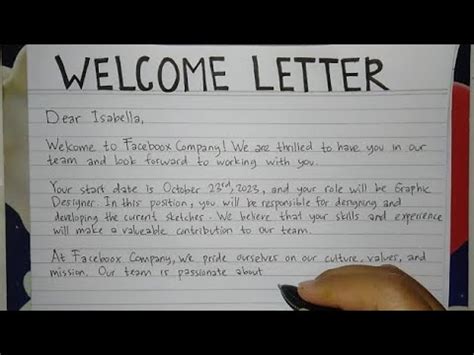 WELCOME LETTER
Dear Isabella,
Welcome to Faceboox Company! We are thrilled to have you in our
team and look forward to working with you.
Your start date is October 23rd, 2023, and your role will be Graphic
Designer. In this position, you will be responsible for designing and
developing the current sketches. We believe that your skills and experience
will make a valueable contribution to our team.
At Faceboox Company, we pride ourselves on our culture, values, and
mission. Our team is passionate about